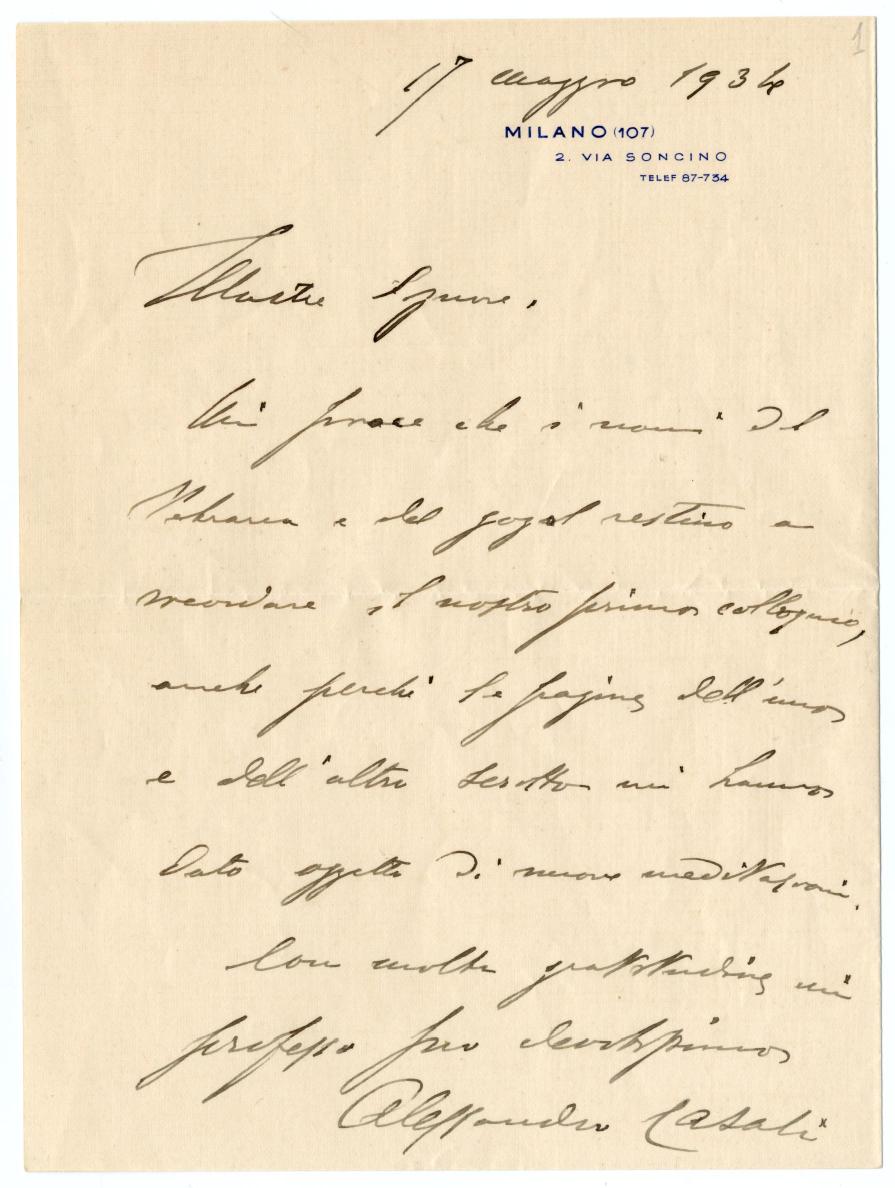 1
17 maggio 1934
MILANO (107)
2. VIA SONCINO
TELEF 87-734
Illustre Signore,
Mi piace che i nomi del
Petrarca e del Gogol restino a
ricordare il nostro primo colloquio,
anche perché le pagine dell'uno
e dell'altro scritto mi hanno
dato oggetto di nuove meditazioni.
Con molta gratitudine mi
professo suo devotissimo
Alessandro Casati